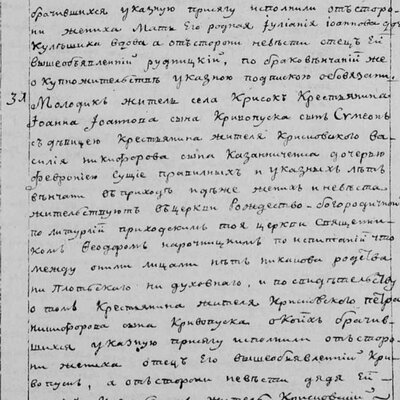 брачившихся указную присягу исполнили отъ сторо-
ни жениха Мать Его родная Іуліанія Іоаннова до
Кулешика вдова а отъ сторони невѣсти отецъ Ей
вышеобъявленній рудницкій, по браковѣнчаній же
о купножителствѣ указною подпискою обвязани.
31 Молодикъ житель села Крисокъ Крестьянина
Іоанна Іоаннова сына Кривопуска сынъ Сѵмеонъ
съ дѣвицею Крестьянина жителя Крисковского Ва-
силія никифорова сына Казанниченка дочерью
феврониею сущіе правилныхъ и указныхъ лѣтъ
вѣнчани въ приходѣ идѣже женихъ и невѣста
жителствуютъ въ церкви рождество-богородичной
по литургіи приходскимъ тоя церкви священни-
комъ Феодоромъ нарочицкимъ по испитаніи что
между оними лицами нѣтъ никакова родства
ни плотского ни духовнаго, и по свидѣтелству
о томъ Крестьянина жителя Крисковского петра
никифорова сына Кривопуска о коихъ брачив-
шихся указную присягу исполнили отъ сторо-
ни жениха отецъ Его вышеобъявленній Кри-
вопускъ, а отъ сторони невѣсти дядя Ей
житель Крисковскій